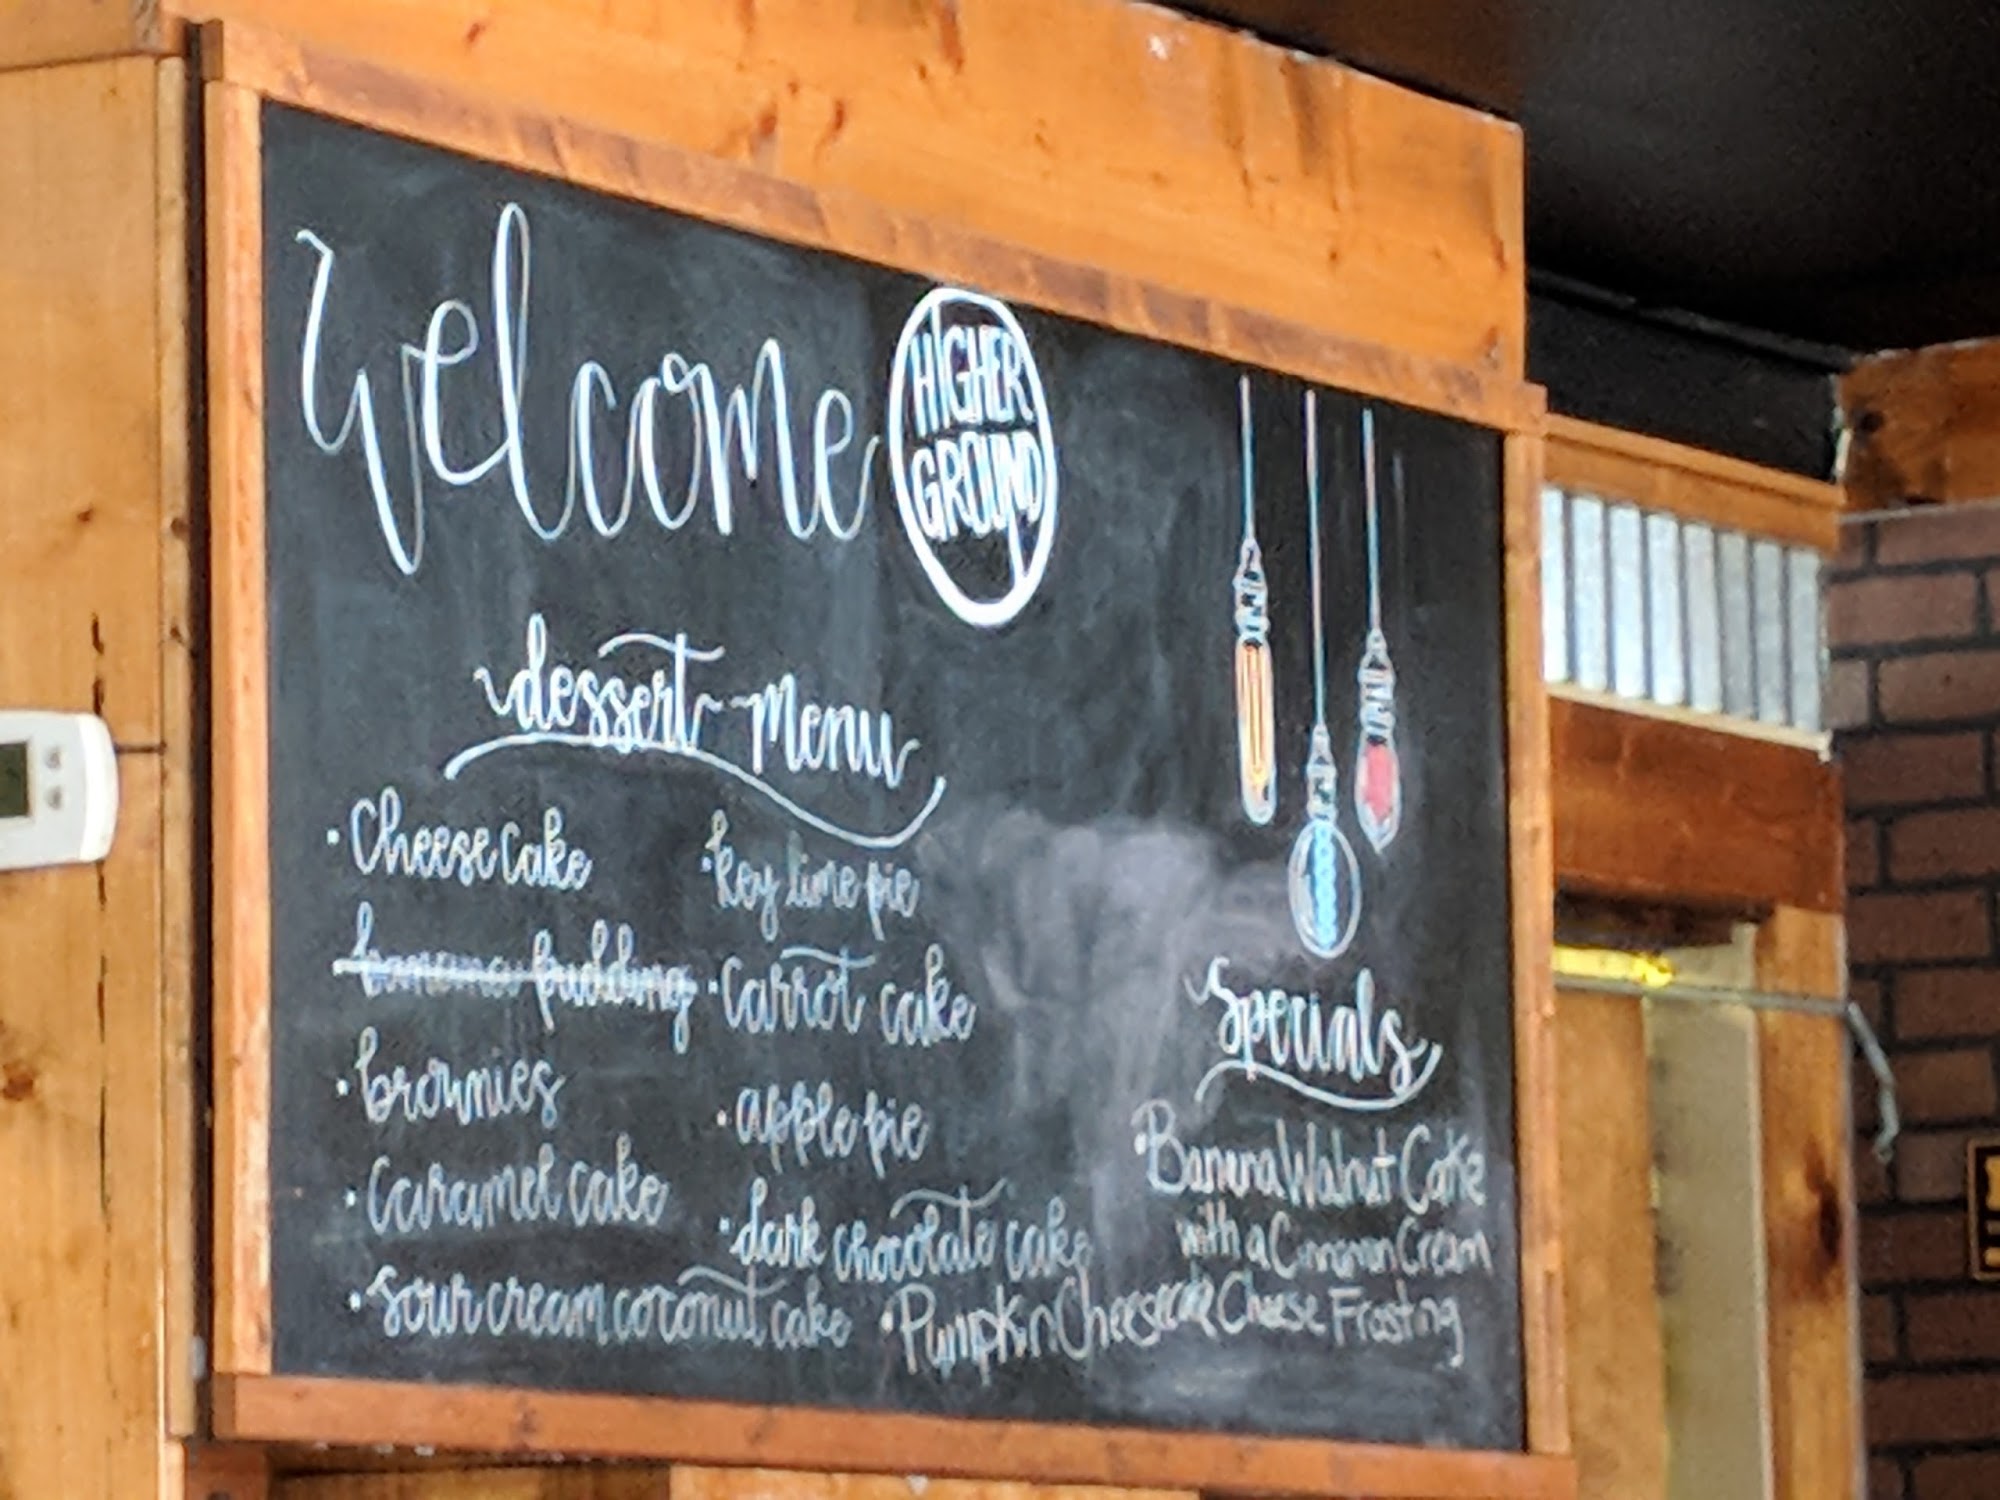 Welcome
HIGHER
GROUND
dessert menu
• Cheesecake
banana pudding
• brownies
• Caramel cake
• sour cream coconut cake
• key lime pie
• Carrot cake
• apple pie
• dark chocolate cake
• Pumpkin Cheesecake
Specials
• Banana Walnut Cake
with a Cinnamon Cream
Cheese Frosting